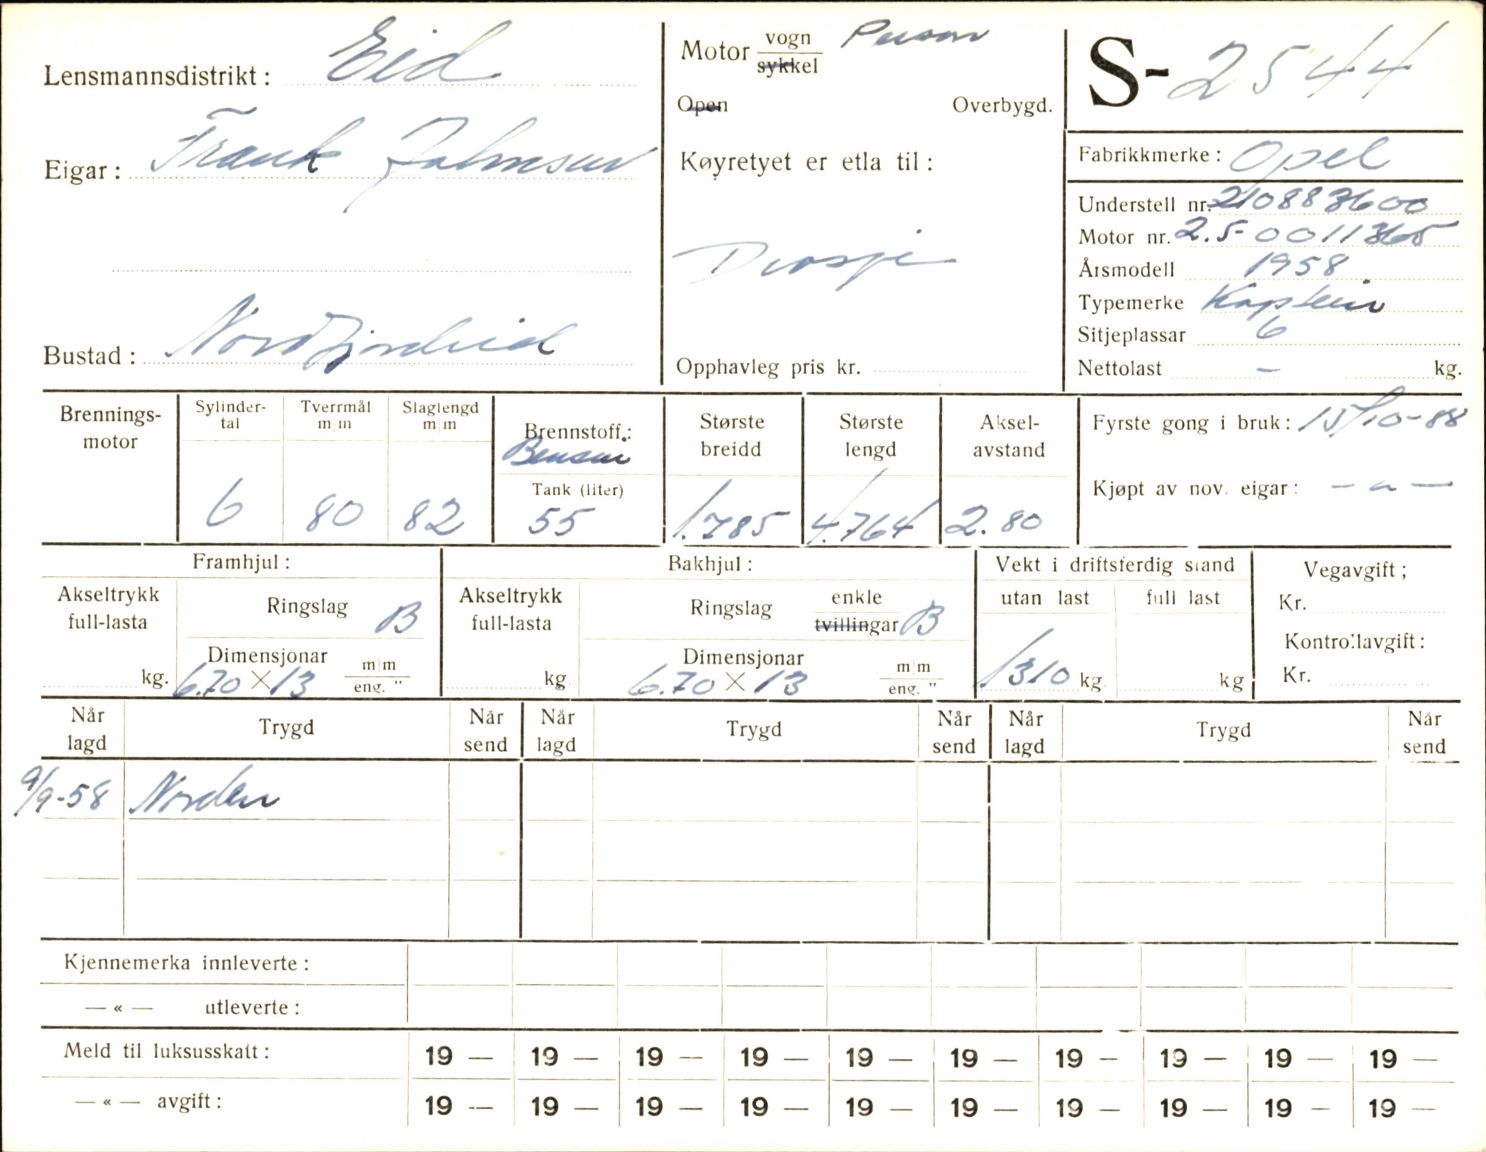 Lensmannsdistrikt: Eid
Eigar: Frank Johnsen
Bustad: Nordfjordeid
Motor vogn Person
sykkel
Open Overbygd.
Køyretyet er etla til:
Drosje
Opphavleg pris kr.
S-2544
Fabrikkmerke: Opel
Understell nr. 210883600
Motor nr. 2.5-0011365
Årsmodell 1958
Typemerke Kaptein
Sitjeplassar 6
Nettolast - kg.
Brennings-
motor
Sylinder-
tal
6
Tverrmål
m|m
80
Slaglengd
m|m
82
Brennstoff:
Bensin
Tank (liter)
55
Største
breidd
1.785
Største
lengd
4.764
Aksel-
avstand
2.80
Fyrste gong i bruk: 15/10-88
Kjøpt av nov. eigar: — „ —
Framhjul:
Akseltrykk
full-lasta
kg.
Ringslag B
Dimensjonar m|m
6.70 × 13 eng. "
Bakhjul:
Akseltrykk
full-lasta
kg
Ringslag enkle
tvillingar B
Dimensjonar m|m
6.70 × 13 eng. "
Vekt i driftsferdig stand
utan last full last
1310 kg. kg
Vegavgift;
Kr.
Kontrollavgift:
Kr.
Når
lagd
Trygd
Når
send
Når
lagd
Trygd
Når
send
Når
lagd
Trygd
Når
send
9/9-58 Norden
Kjennemerka innleverte:
— « — utleverte:
Meld til luksusskatt: 19 — 19 — 19 — 19 — 19 — 19 — 19 — 19 — 19 — 19 —
— « — avgift: 19 — 19 — 19 — 19 — 19 — 19 — 19 — 19 — 19 — 19 —